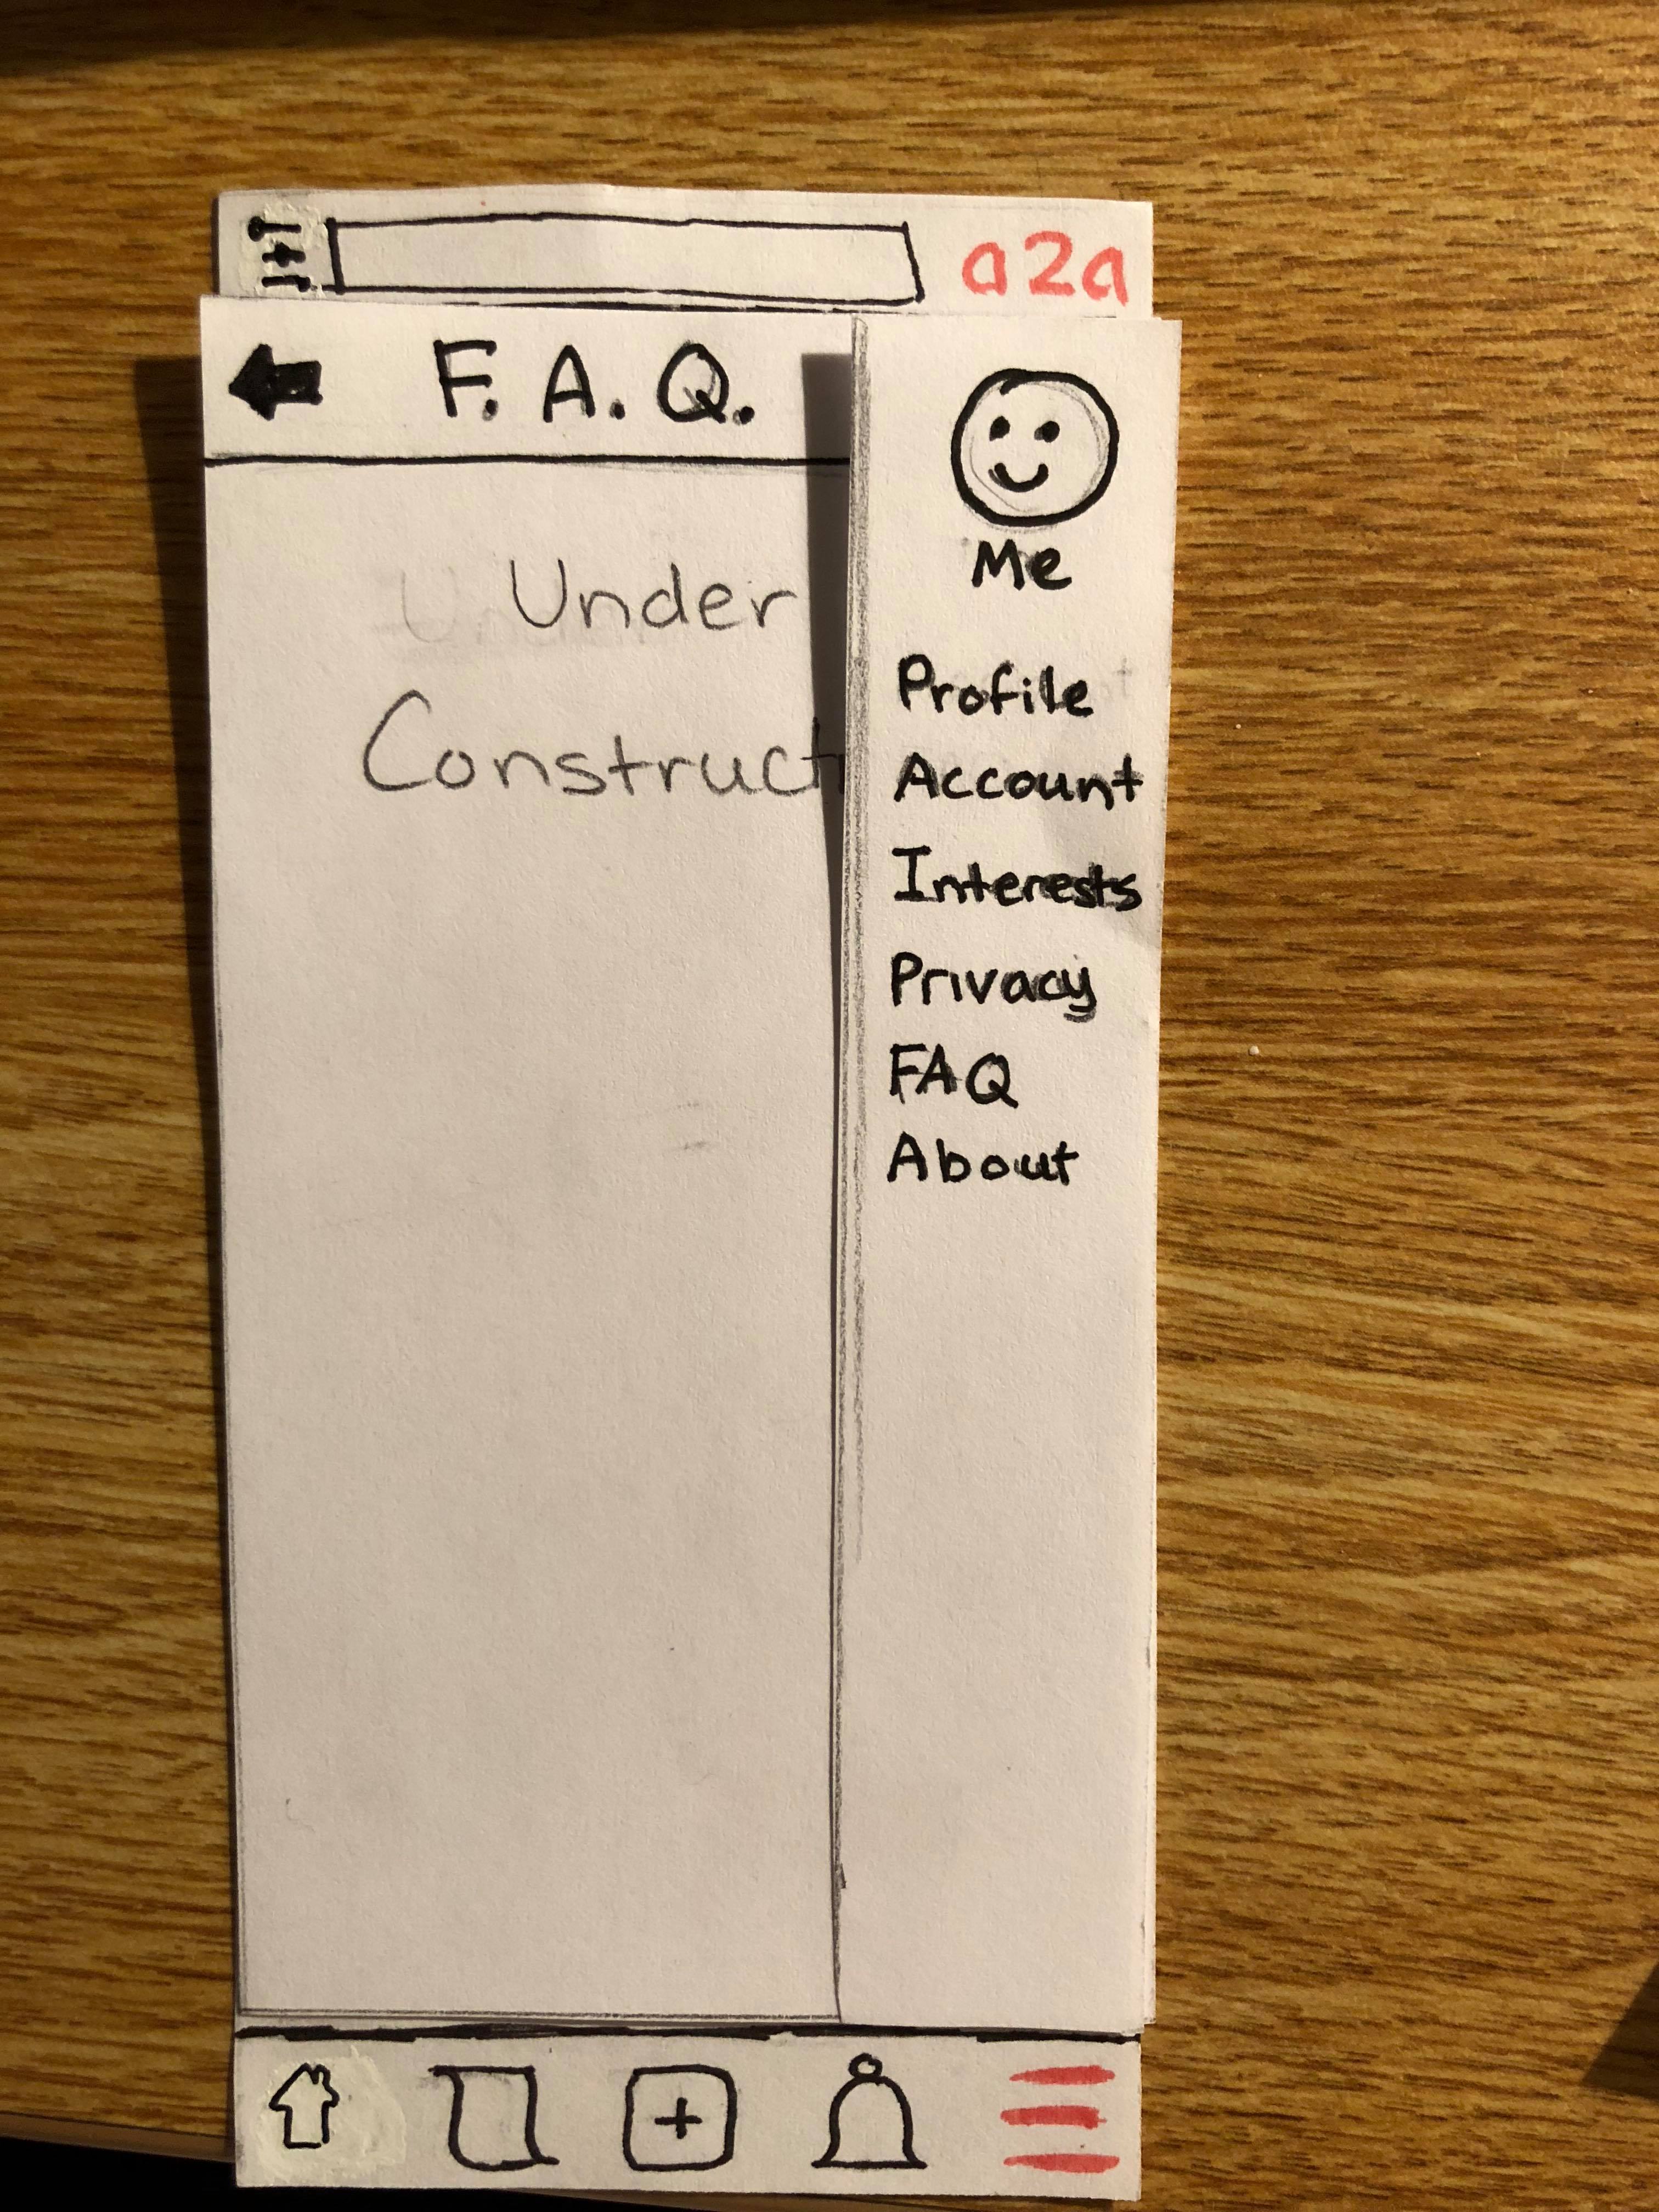 a2a
F. A. Q.
Under
Construct
Me
Profile
Account
Interests
Privacy
FAQ
About